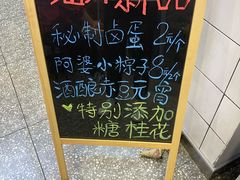 新品
秘制卤蛋 2元/个
阿婆小粽子 8元/2个
酒酿赤豆元宵
特别添加
糖桂花